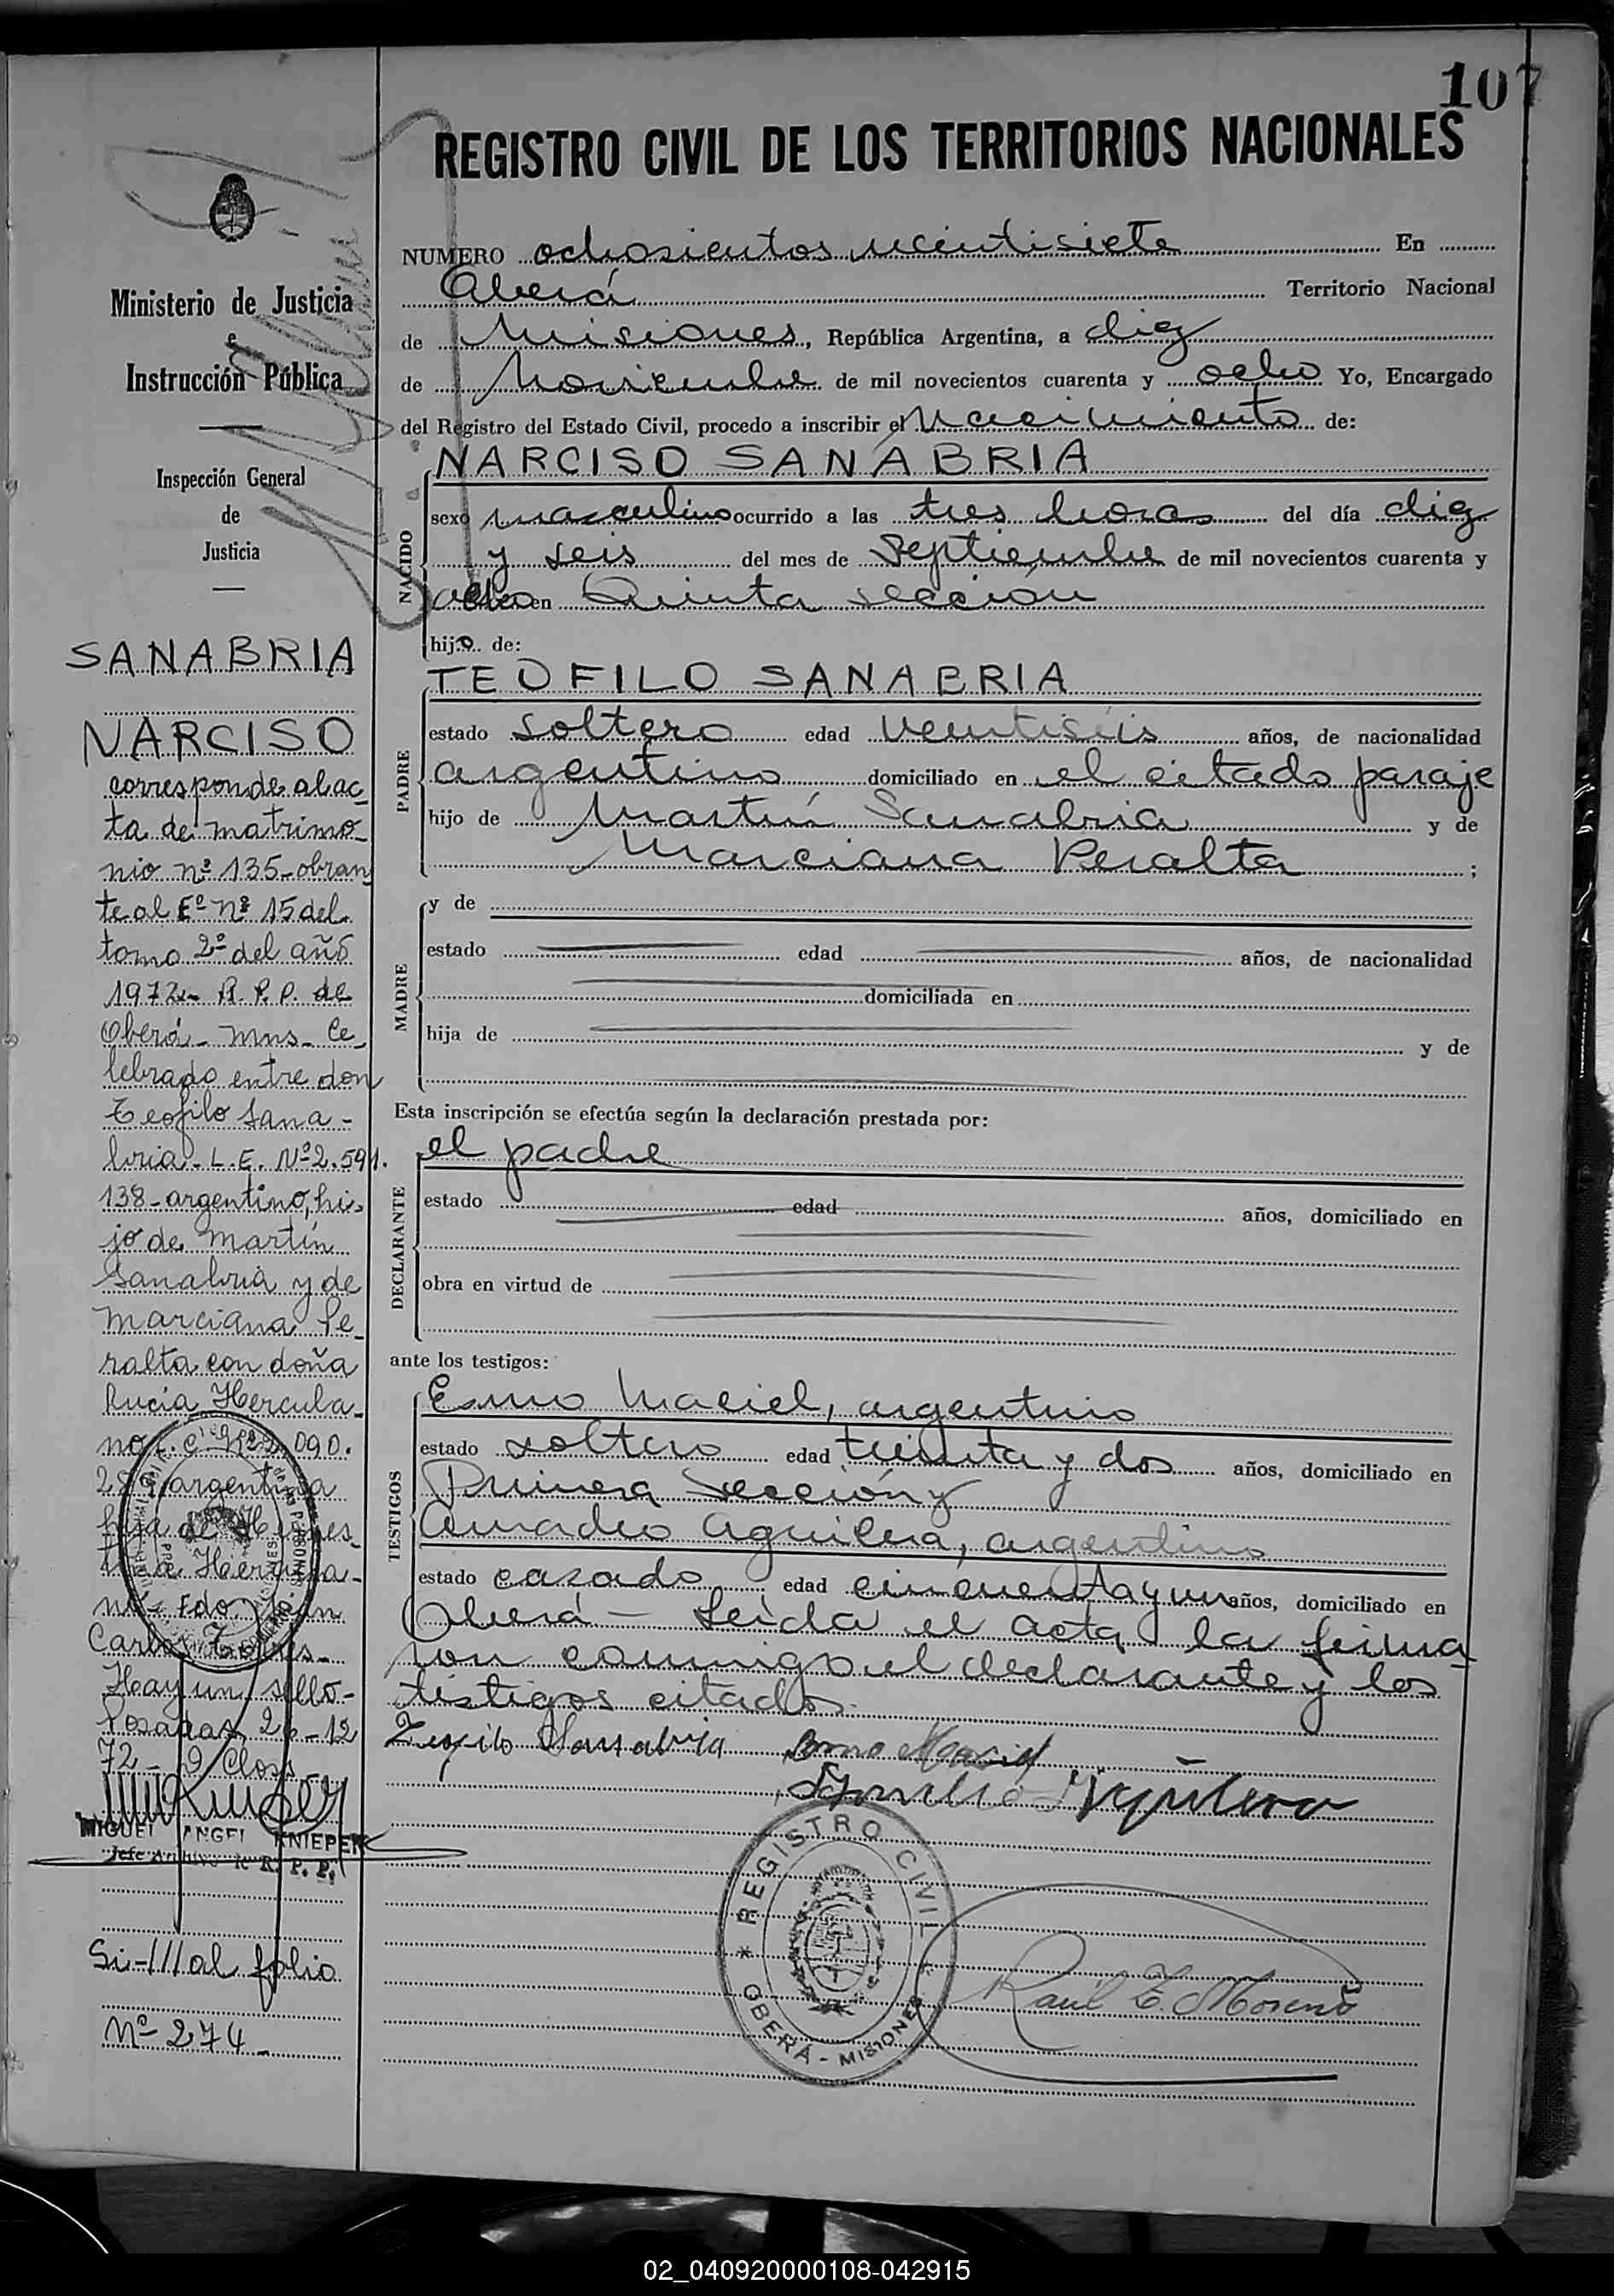 107
REGISTRO CIVIL DE LOS TERRITORIOS NACIONALES
NUMERO ochosientos veintisiete En
Oberá Territorio Nacional
de Misiones, República Argentina, a diez
de Noviembre de mil novecientos cuarenta y ocho Yo, Encargado
del Registro del Estado Civil, procedo a inscribir el nacimiento de:
NACIDO
NARCISO SANABRIA
sexo masculino ocurrido a las tres horas del día diez
y seis del mes de Septiembre de mil novecientos cuarenta y
ocho en Quinta sección
hijo de:
PADRE
TEOFILO SANABRIA
estado soltero edad veintiséis años, de nacionalidad
argentino domiciliado en el citado paraje
hijo de Martín Sanabria y de
Marciana Peralta ;
MADRE
y de
estado edad años, de nacionalidad
domiciliada en
hija de y de
Esta inscripción se efectúa según la declaración prestada por:
DECLARANTE
el padre
estado edad años, domiciliado en
obra en virtud de
ante los testigos:
TESTIGOS
Maciel, argentino
estado soltero edad treinta y dos años, domiciliado en
Primera Sección y
Amadeo Aguilera, argentino
estado casado edad cincuenta y un años, domiciliado en
Oberá - Leída el acta la firma
ron conmigo el declarante y los
testigos citados.
Teofilo Sanabria
Aguilera
REGISTRO CIVIL
OBERÁ - MISIONES
Raúl E. Moreno
Ministerio de Justicia
e
Instrucción Pública
Inspección General
de
Justicia
SANABRIA
NARCISO
corresponde al ac-
ta de matrimo-
nio nº 135-obran
te al Fº Nº 15 del
tomo 2º del año
1972- R.P.P. de
Oberá- Mns- Ce-
lebrado entre don
Teofilo Sana-
bria- L.E. Nº 2.591.
138-argentino, hi-
jo de Martín
Sanabria y de
Marciana Pe-
ralta con doña
Lucía Hercula-
no 090.
argentina
hija de
Carlos
Hay un sello-
Posadas 26-12
72
MIGUEL ANGEL KNIEPER
Jefe Archivo R. P. P.
Si-///al folio
Nº 274-
02_040920000108-042915